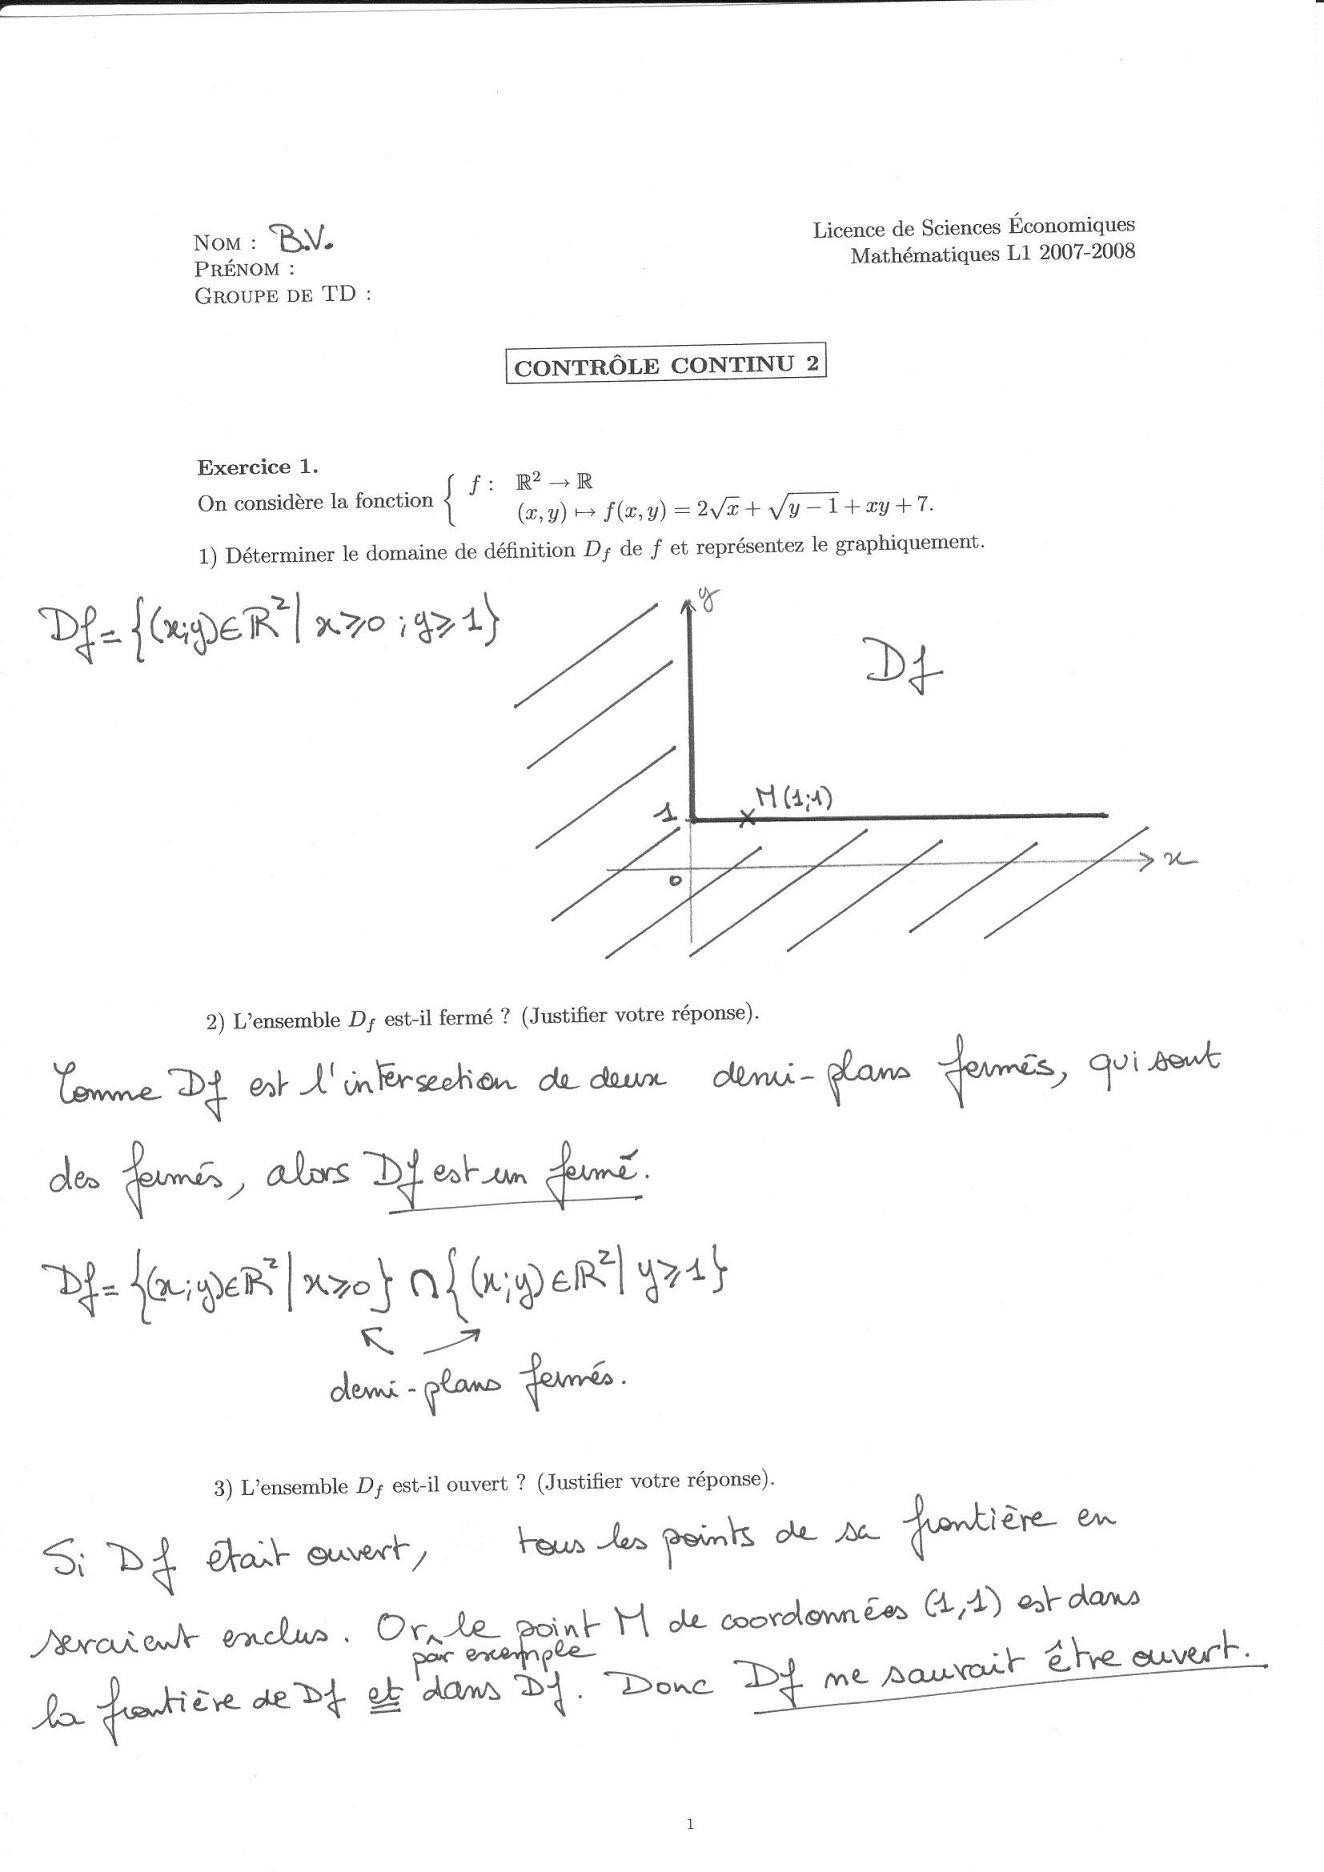 NOM : B.V.
PRÉNOM :
GROUPE DE TD :
Licence de Sciences Économiques
Mathématiques L1 2007-2008
CONTRÔLE CONTINU 2
Exercice 1.
On considère la fonction { f : ℝ² → ℝ
(x, y) ↦ f(x, y) = 2√x + √(y − 1) + xy + 7.
1) Déterminer le domaine de définition D_f de f et représentez le graphiquement.
Df = {(x;y)∈ℝ² | x⩾0 ; y⩾1}
y
Df
M(1;1)
1
x
0
2) L'ensemble D_f est-il fermé ? (Justifier votre réponse).
Comme Df est l'intersection de deux demi-plans fermés, qui sont
des fermés, alors Df est un fermé.
Df = {(x;y)∈ℝ² | x⩾0} ∩ {(x;y)∈ℝ² | y⩾1}
demi-plans fermés.
3) L'ensemble D_f est-il ouvert ? (Justifier votre réponse).
Si Df était ouvert, tous les points de sa frontière en
seraient exclus. Or, par exemple le point M de coordonnées (1,1) est dans
la frontière de Df et dans Df. Donc Df ne saurait être ouvert.
1